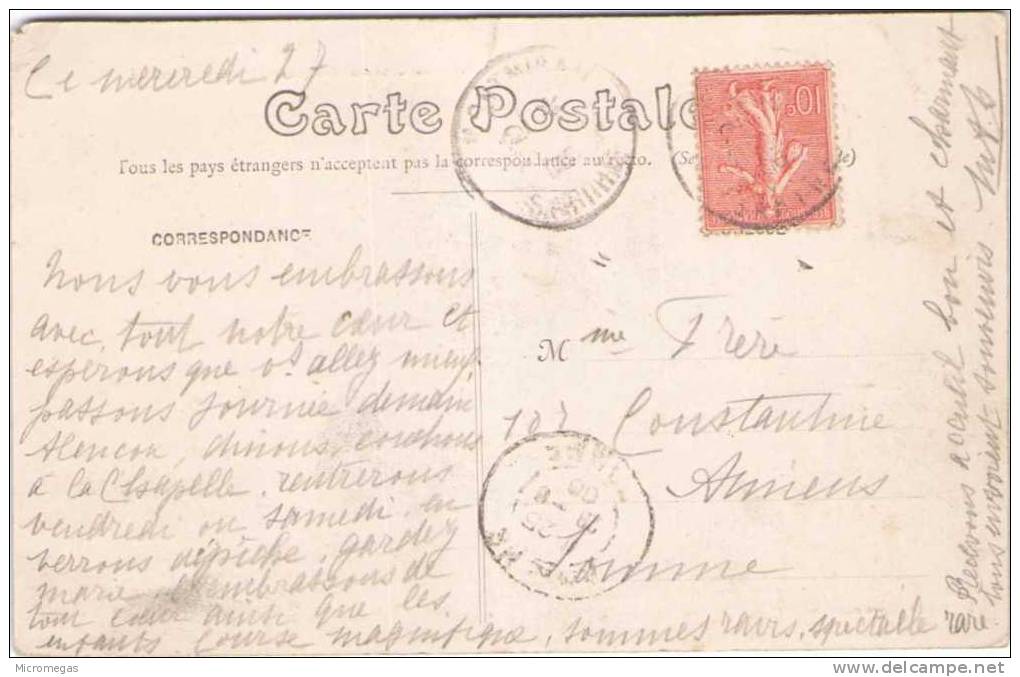 Ce mercredi 27
Carte Postale
Tous les pays étrangers n'acceptent pas la correspondance au recto. (Se
CORRESPONDANCE
Nous vous embrassons
avec tout notre cœur et
espérons que vs allez mieux
passons journée demain
Alencon, dinons, couchons
à la Chapelle. rentrerons
vendredi ou samedi. en
verrons dépêche. gardez
marie. Embrassons de
tout cœur ainsi que les
enfants. Course magnifique, sommes ravis, spectacle rare
Recevons accueil bon et charmant
tous envoient souvenirs.
10c
SARTHE
Mme Frère
107 Constantine
Amiens
Somme
Micromegas
www.delcampe.net